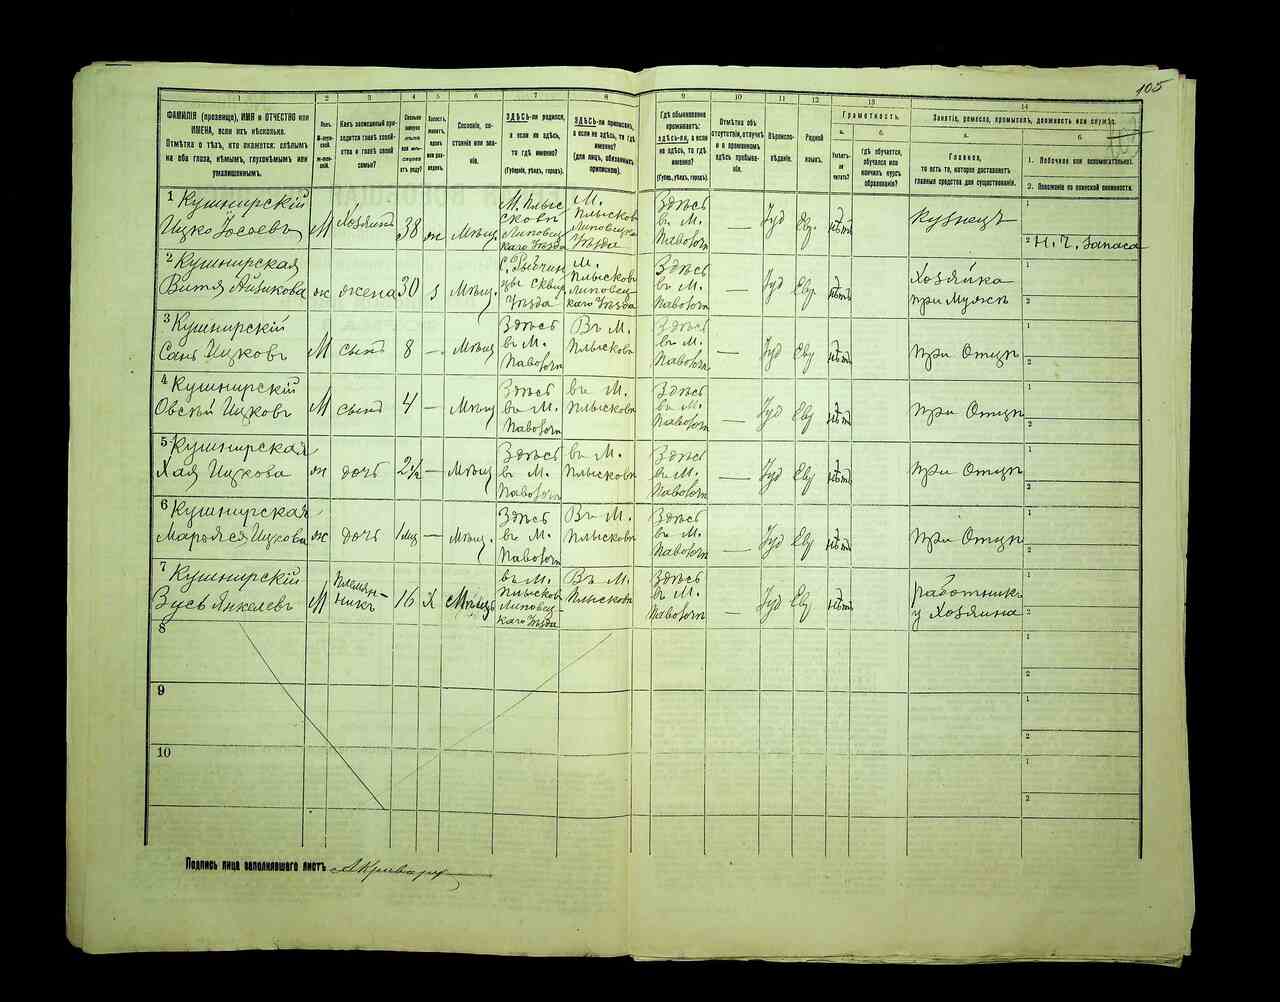 105
1 2 3 4 5 6 7 8 9 10 11 12 13 14
ФАМИЛІЯ (прозвище), ИМЯ и ОТЧЕСТВО или
ИМЕНА, если ихъ нѣсколько.
Отмѣтка о тѣхъ, кто окажется: слѣпымъ
на оба глаза, нѣмымъ, глухонѣмымъ или
умалишеннымъ.
Полъ.
Какъ записанный при-
ходится главѣ хозяй-
ства и главѣ своей
семьи?
Сословіе, со-
стояніе или зва-
ніе.
ЗДѢСЬ-ли родился,
а если не здѣсь,
то гдѣ именно?
(Губернія, уѣздъ, городъ).
ЗДѢСЬ-ли приписанъ,
а если не здѣсь, то гдѣ
именно?
(для лицъ, обязанныхъ
припискою).
Гдѣ обыкновенно
проживаетъ:
здѣсь-ли, а если
не здѣсь, то гдѣ
именно?
(Губер., уѣздъ, городъ).
Отмѣтка объ
отсутствіи, отлучкѣ
и о временномъ
здѣсь пребыва-
ніи.
Вѣроиспо-
вѣданіе.
Родной
языкъ.
Грамотность.
а. б.
Умѣетъ-
ли
читать?
гдѣ обучается,
обучался или
кончилъ курсъ
образованія?
Занятіе, ремесло, промыселъ, должность или служба.
а. б.
Главное,
то есть то, которое доставляетъ
главныя средства для существованія.
1. Побочное или вспомогательное.
2. Положеніе по воинской повинности.
1 Кушнирскій
Ицко Іосаевъ М Хозяинъ 38 ж Мѣщ
М. Плыс
сковъ
Липовец
каго Уѣзда
М.
Плысковъ
Липовица
Уѣзда
Здѣсь
въ М.
Паволочи
— Іуд Ев. нѣтъ Кузнецъ
1
2 Н. Ч. Запаса
2 Кушнирская
Витя Айзикова ж жена 30 з Мѣщ.
Сквир
Уѣзда
М.
Плысковъ
Липовец-
каго Уѣзда
Здѣсь
въ М.
Паволочи
— Іуд Евр нѣтъ
Хозяйка
при Мужѣ
1
2
3 Кушнирскій
Ицковъ М сынъ 8 — Мѣщ
Здѣсь
въ М.
Паволочи
Въ М.
Плысковъ
Здѣсь
въ М.
Паволочи
— Іуд Евр нѣтъ при Отцѣ
1
2
4 Кушнирскій
Овсѣй Ицковъ М сынъ 4 — Мѣщ
Здѣсь
въ М.
Паволочи
въ М.
Плысковъ
Здѣсь
въ М.
Паволочи
— Іуд Евр нѣтъ при Отцѣ
1
2
5 Кушнирская
Хая Ицкова ж дочь 2½ — Мѣщ
Здѣсь
въ М.
Паволочи
въ М.
Плысковъ
Здѣсь
въ М.
Паволочи
— Іуд Евр нѣтъ при Отцѣ
1
2
6 Кушнирская
Марьяся Ицкова ж дочь 1 мц — Мѣщ.
Здѣсь
въ М.
Паволочи
Въ М.
Плысковъ
Здѣсь
въ М.
Паволочи
— Іуд Евр нѣтъ при Отцѣ
1
2
7 Кушнирскій
Зусь Янкелевъ М племян-
никъ 16 Х Мѣщ
въ М.
Плысков
Липовец-
каго Уѣзда
Въ М.
Плысковъ
Здѣсь
въ М.
Паволочи
— Іуд Евр нѣтъ
работникъ
у Хозяина
1
2
8
1
2
9
1
2
10
1
2
Подпись лица заполнявшаго листъ